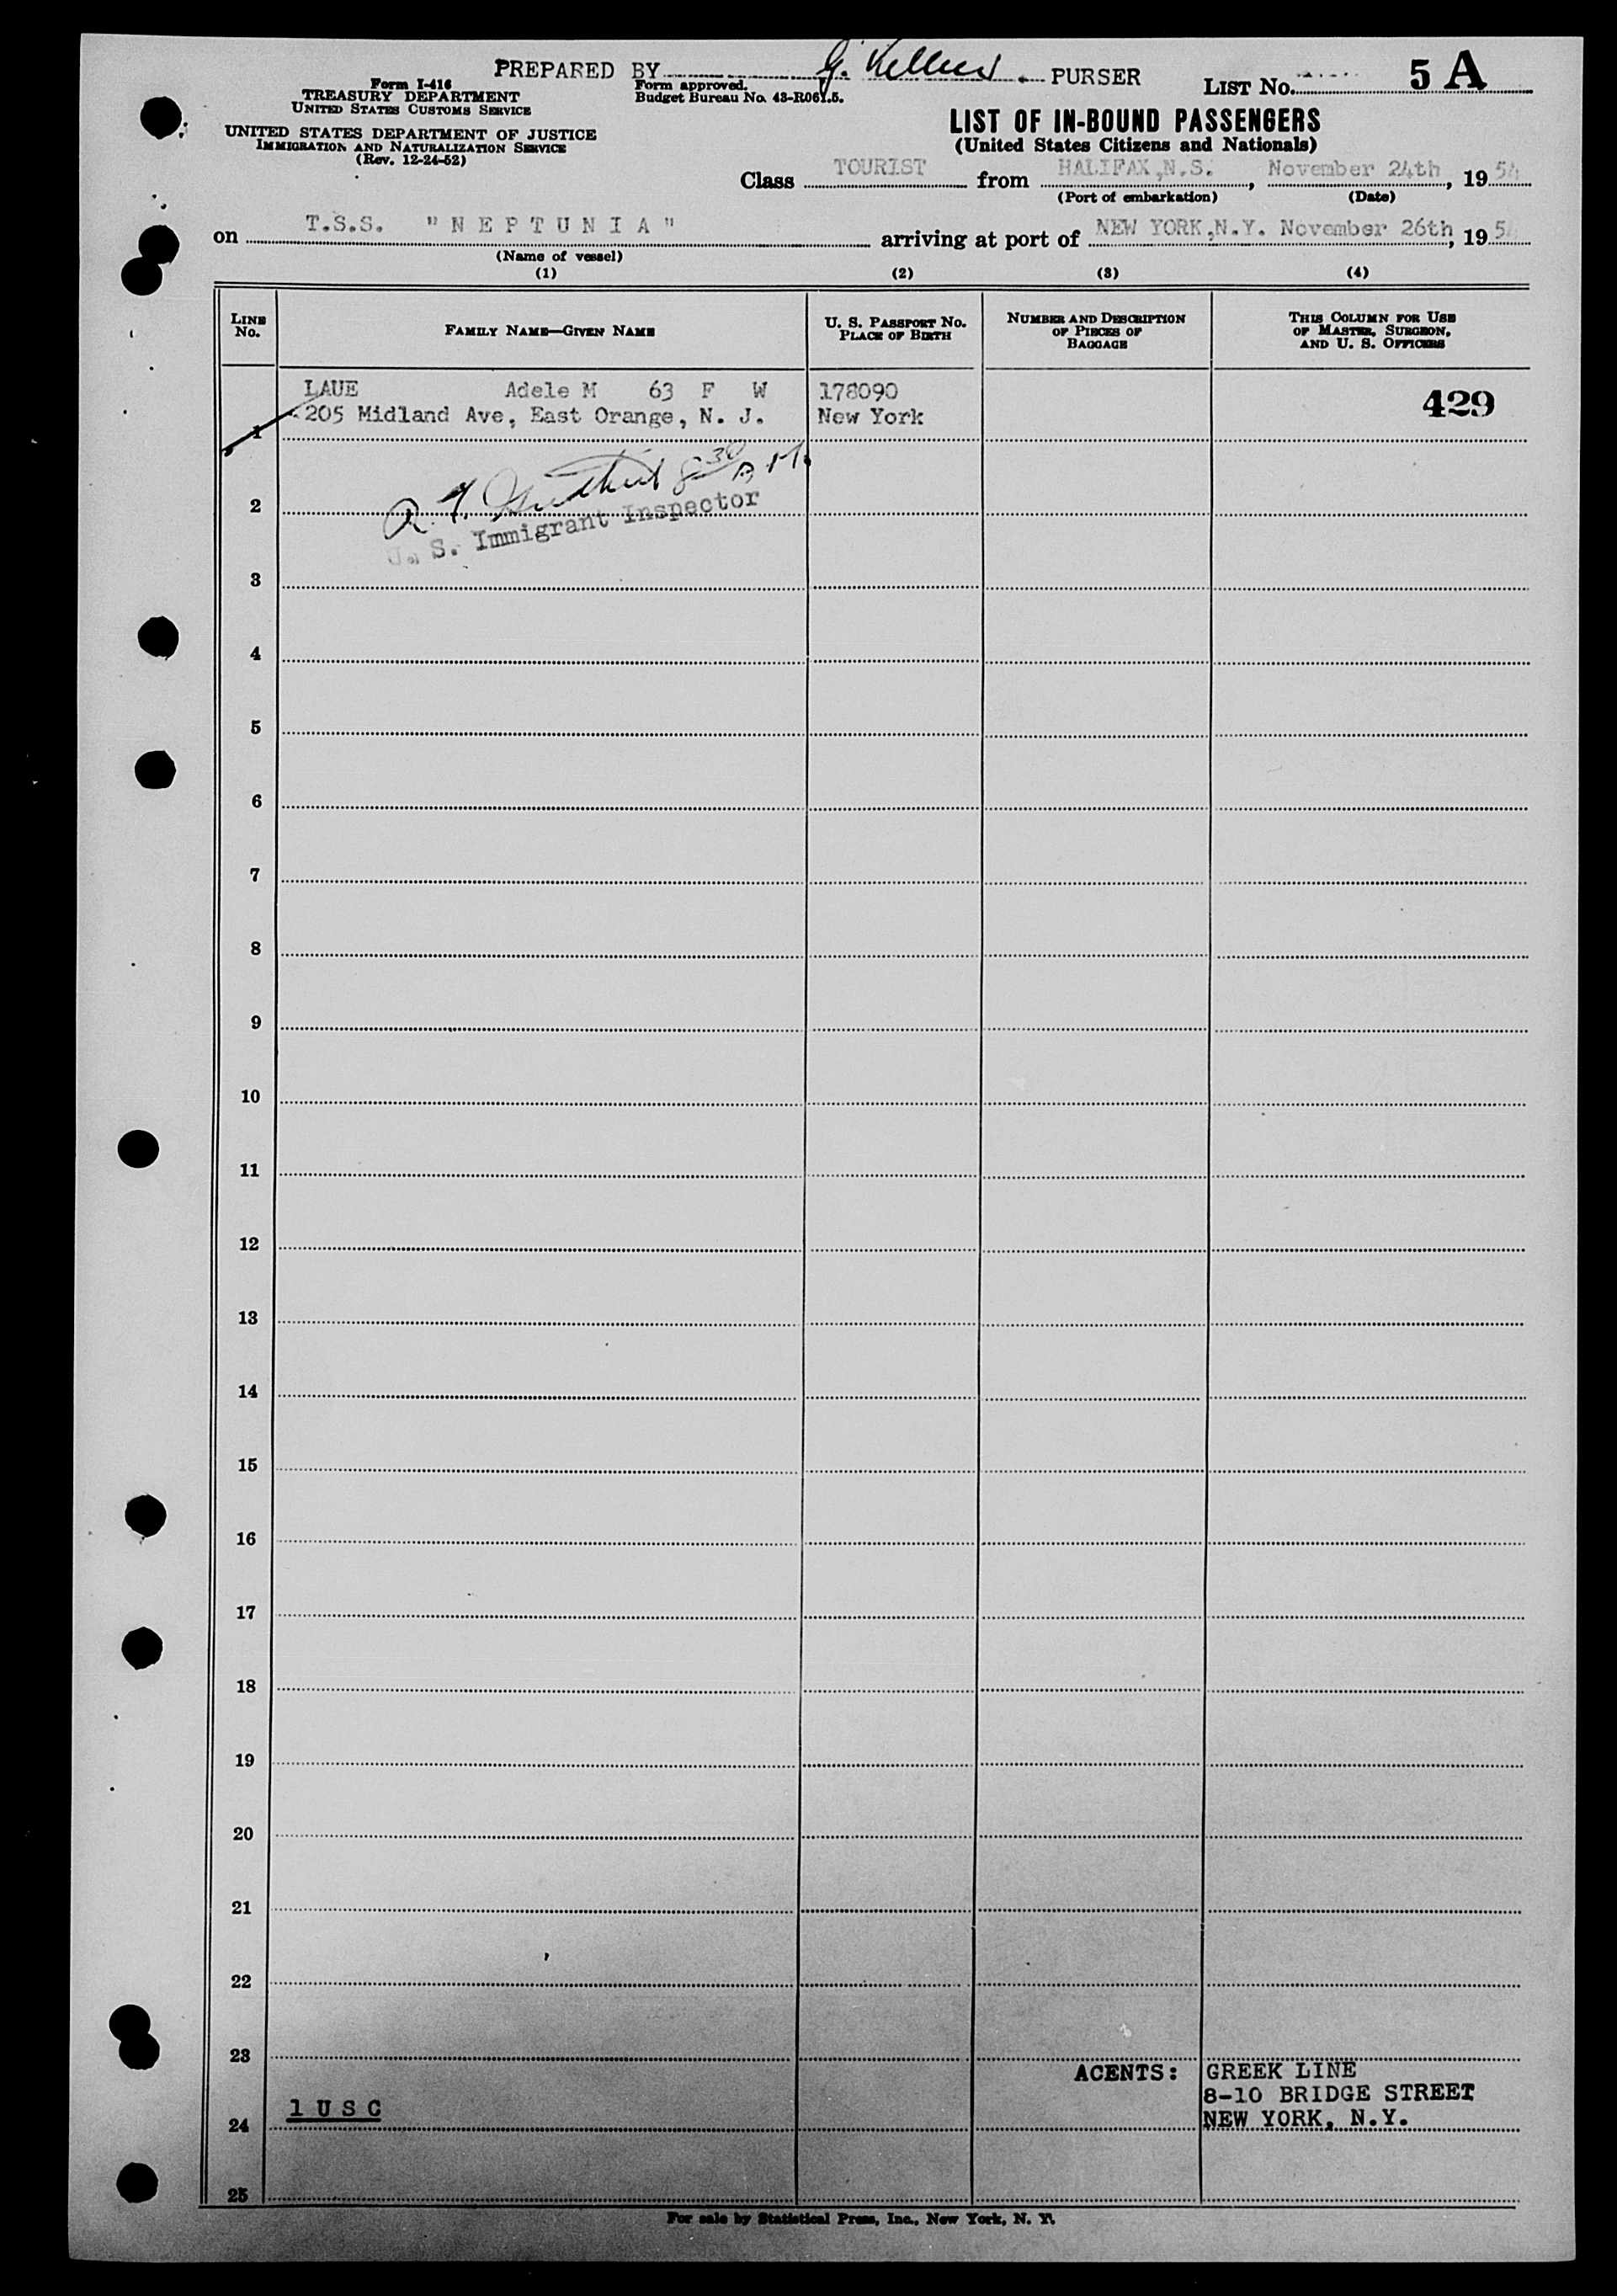 PREPARED BY G. Kellers. PURSER
LIST No. 5 A
Form I-416
TREASURY DEPARTMENT
UNITED STATES CUSTOMS SERVICE
Form approved.
Budget Bureau No. 43-R061.5.
UNITED STATES DEPARTMENT OF JUSTICE
IMMIGRATION AND NATURALIZATION SERVICE
(Rev. 12-24-52)
LIST OF IN-BOUND PASSENGERS
(United States Citizens and Nationals)
Class TOURIST from HALIFAX,N.S., November 24th, 1954
(Port of embarkation) (Date)
on T.S.S. "NEPTUNIA" arriving at port of NEW YORK,N.Y. November 26th, 195
(Name of vessel)
(1) (2) (3) (4)
LINE No. FAMILY NAME—GIVEN NAME U. S. PASSPORT No. PLACE OF BIRTH NUMBER AND DESCRIPTION OF PIECES OF BAGGAGE THIS COLUMN FOR USE OF MASTER, SURGEON, AND U. S. OFFICERS
LAUE Adele M 63 F W 178090 429
1 205 Midland Ave, East Orange, N. J. New York
R. 8 30
2
U. S. Immigrant Inspector
3
4
5
6
7
8
9
10
11
12
13
14
15
16
17
18
19
20
21
22
23
AGENTS: GREEK LINE
8-10 BRIDGE STREET
24 1 U S C NEW YORK, N.Y.
25
For sale by Statistical Press, Inc., New York, N. Y.